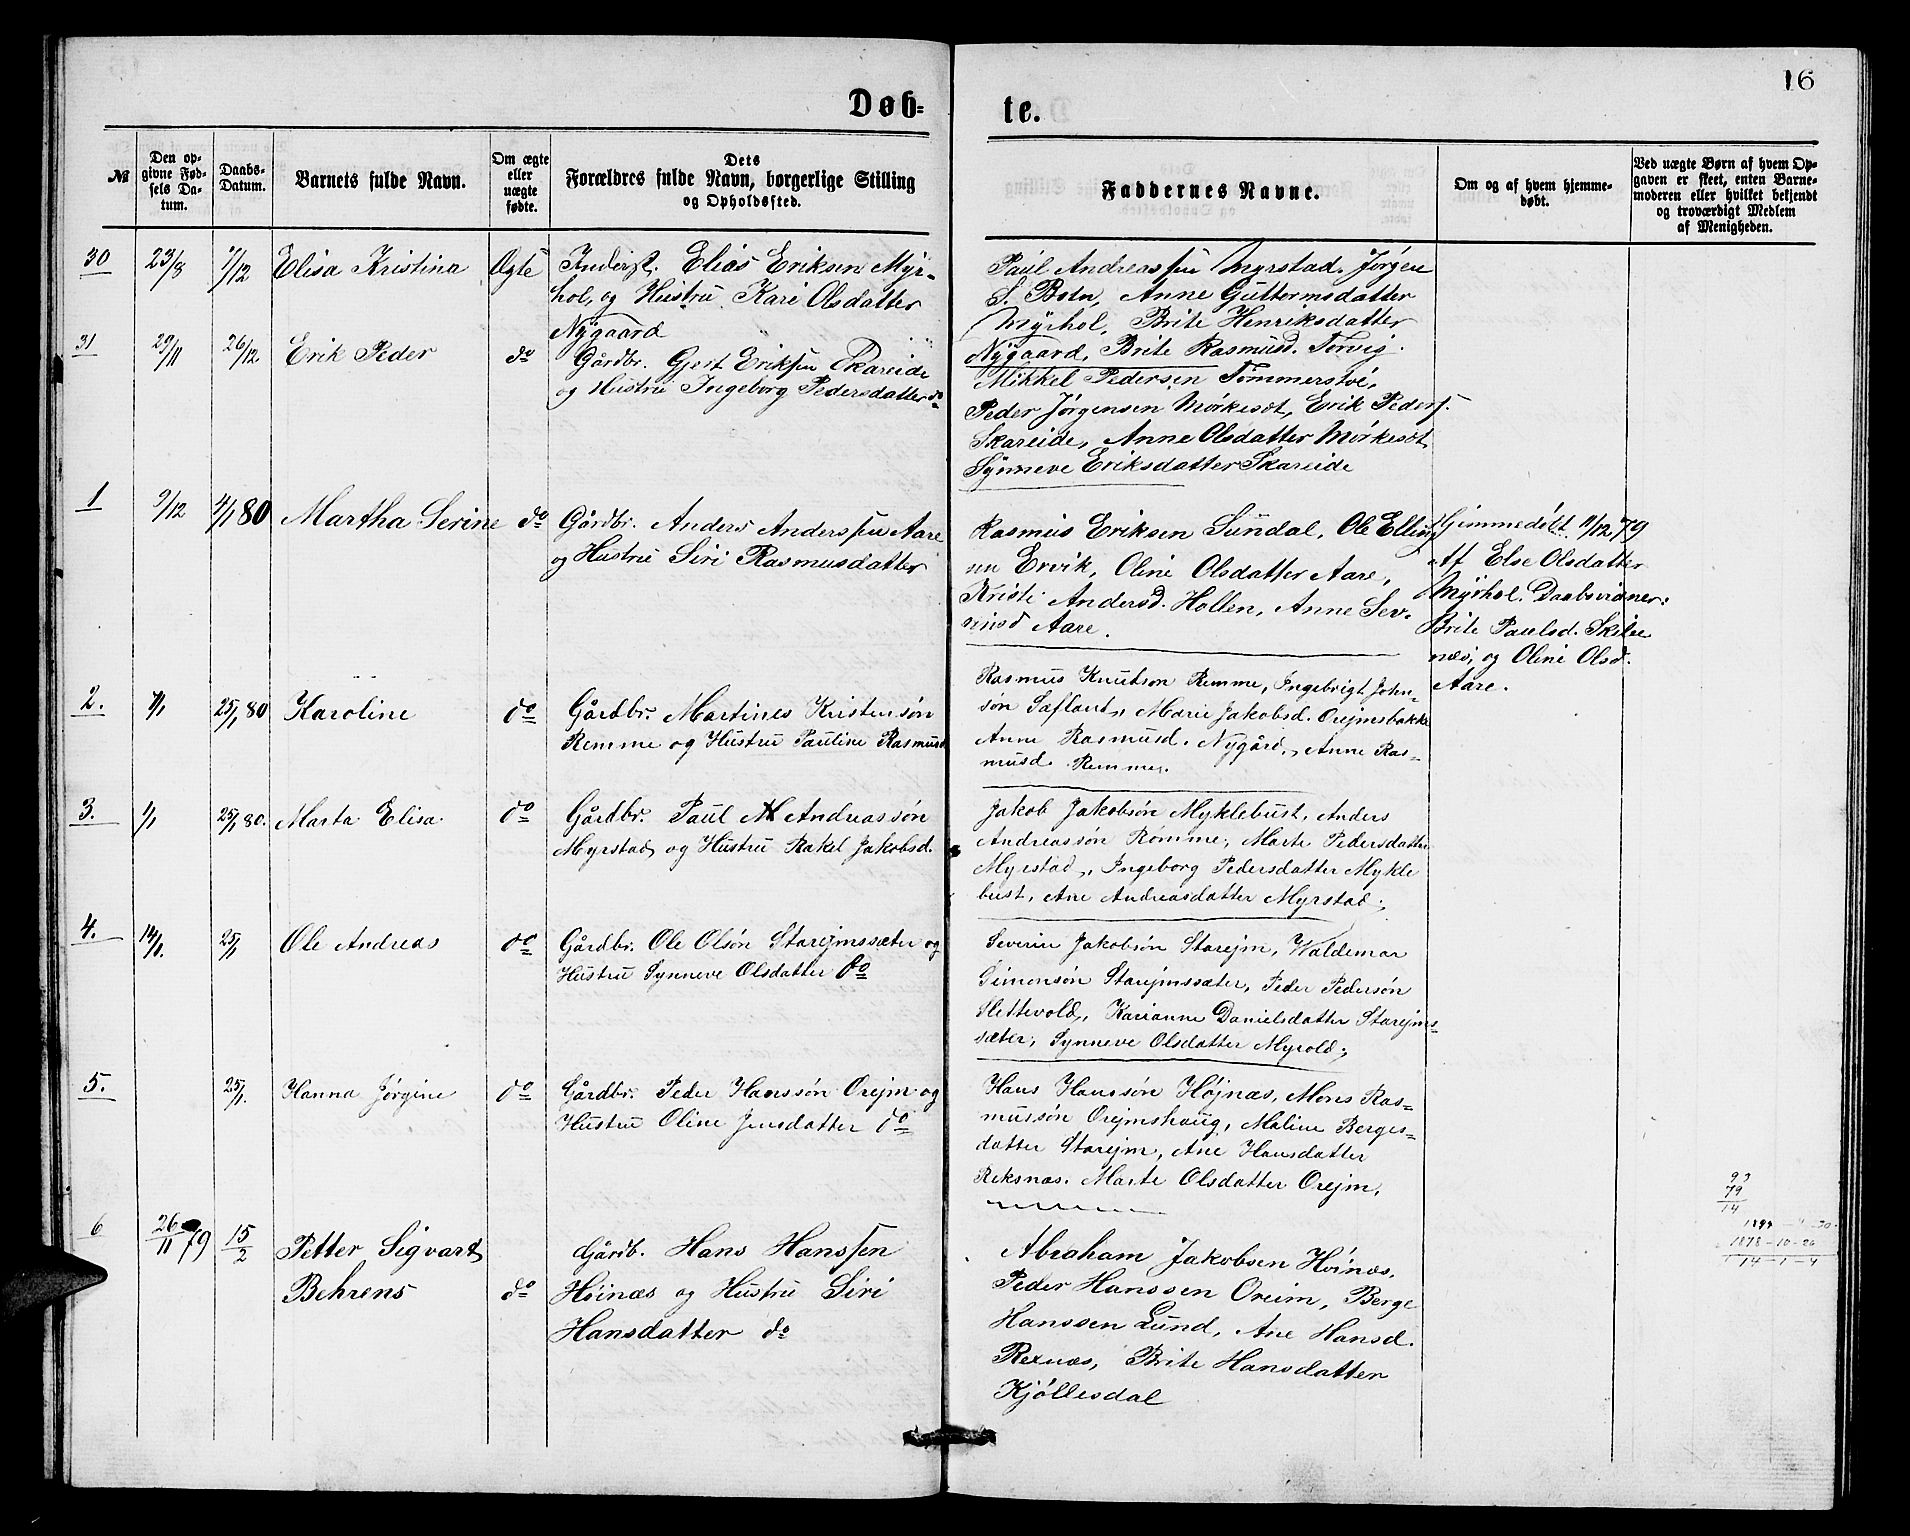 16
Døb- te.
№
Den opgivne Fødsels Datum.
Daabs-Datum.
Barnets fulde Navn.
Om ægte eller uægte fødte.
Dets Forældres fulde Navn, borgerlige Stilling og Opholdssted.
Faddernes Navne.
Om og af hvem hjemmedøbt.
Ved uægte Børn af hvem Opgaven er skeet, enten Barnemoderen eller hvilket bekjendt og troværdigt Medlem af Menigheden.
30 23/8 7/12 Elisa Kristina Ægte
Inderst. Elias Eriksen Myr-
hol, og Hustru Kari Olsdatter
Nygaard
Paul Andreassen Myrstad. Jørgen
S. Botn, Anne Guttormsdatter
Myrhol, Brite Henriksdatter
Nygaard, Brite Rasmusd. Torvig.
31 29/11 26/12 Erik Peder do
Gårdbr. Gjert Eriksen Skareide
og Hustru Ingeborg Pedersdatter do
Mikkel Pedersen Tømmerstøl,
Peder Jørgensen Mørkeset, Erik Peders.
Skareide, Anne Olsdatter Mørkeset
Synneve Eriksdatter Skareide
1 9/12 4/1 80 Martha Serine do
Gårdbr. Anders Anderssen Aare
og Hustru Siri Rasmusdatter
Rasmus Eriksen Sundal, Ole Elling
sen Ervik, Oline Olsdatter Aare,
Kristi Andersd. Hollen, Anne Sev-
rinsd Aare.
Hjimmedøbt 11/12 79
Af Else Olsdatter
Myrhol. Daabsvidner:
Brite Paulsd. Skilbe
næs, og Oline Olsd.
Aare.
2. 7/1 25/1 80 Karoline do
Gårdbr. Martines Kristensøn
Remme og Hustru Pauline Rasmusd
Rasmus Knutson Remme, Ingebrigt John-
søn Saflant, Marie Jakobsd. Orejmsbakke
Anne Rasmusd. Nygård, Anne Ras-
musd. Remme.
3. 1/1 25/1 80. Marta Elisa. do
Gårdbr. Paul M Andreassøn
Myrstad, og Hustru Rakel Jakobsd.
Jakob Jakobsøn Myklebust, Anders
Andreassøn Rømme, Marte Pedersdatter
Myrstad, Ingeborg Pedersdatter Mykle
bust, Ane Andreasdatter Myrstad.
4. 14/1. 25/1 Ole Andreas do
Gårdbr. Ole Olsøn Starejmssæter og
Hustru Synneve Olsdatter do
Severin Jakobsøn Starejm, Waldemar
Simonsøn Starejmssæter, Peder Pedersøn
Slettevold, Karianne Danielsdatter Starejms-
sæter, Synneve Olsdatter Myrold.
5. 25/1. Hanna Jørgine do
Gårdbr. Peder Hanssøn Orejm og
Hustru Oline Jensdatter do
Hans Hanssøn Højnæs, Mons Ras-
mussøn Orejmshaug, Maline Berges-
datter Starejm, Ane Hansdatter
Reksnæs. Marte Olsdatter Orejm.
6 26/11 79 15/2 Petter Sigvard
Behrens do
Gårdb. Hans Hanssen
Høinæs og Hustru Siri
Hansdatter do
Abraham Jakobsen Høinæs,
Peder Hanssen Oreim, Berge
Hanssen Lund, Ane Hansd.
Rexnæs, Brite Hansdatter
Kjøllesdal
93
79
14
1878-10-26
14-1-4